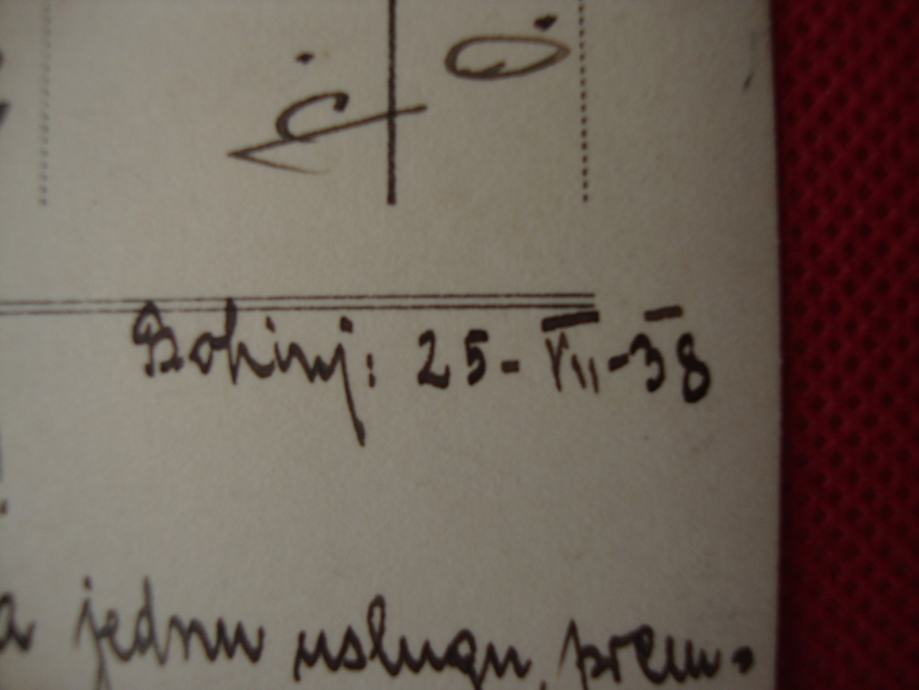 Bohinj: 25-VII-38
a jednu uslugu, prem-